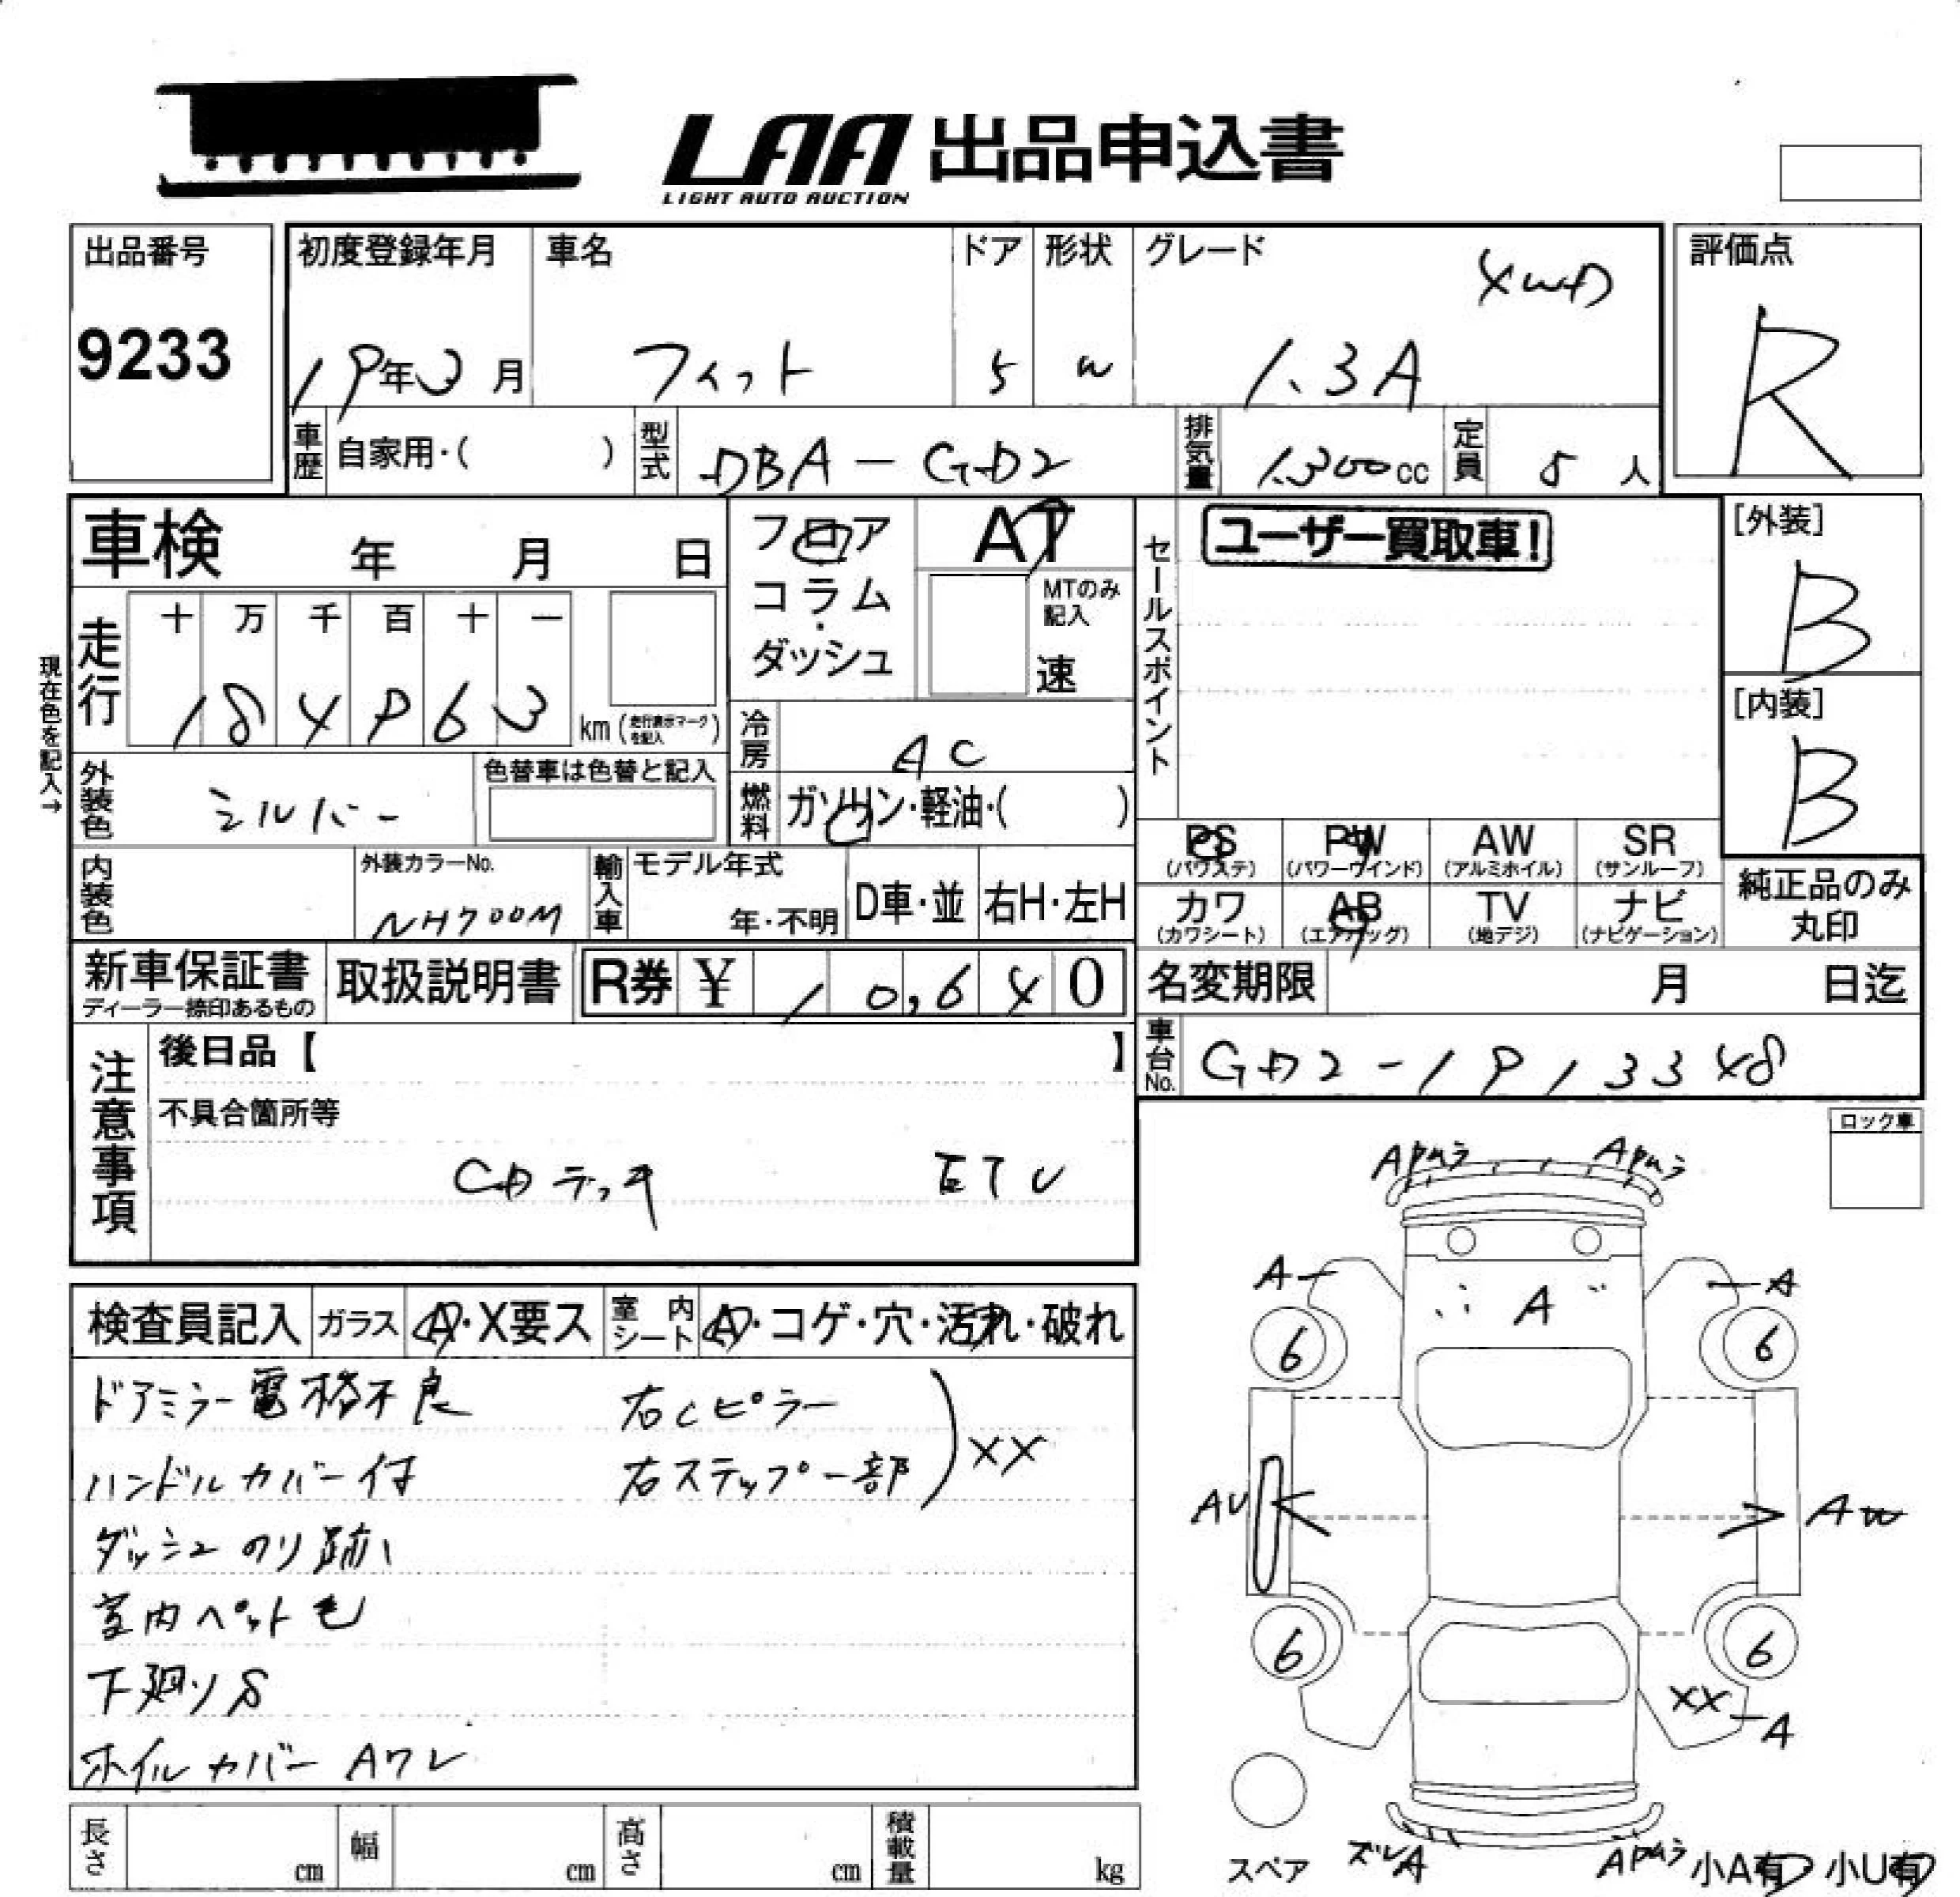 LAA 出品申込書
LIGHT AUTO AUCTION
出品番号
9233
初度登録年月 車名 ドア 形状 グレード 4WD
19年3月 フィット 5 W 1.3A
評価点
R
車歴 自家用・( ) 型式 DBA-GD2 排気量 1300cc 定員 5人
車検 年 月 日
フロア
コラム・
ダッシュ
AT
MTのみ
記入
速
セールスポイント
ユーザー買取車!
[外装]
B
[内装]
B
現在色を記入→
走行
十 万 千 百 十 一
184963 km (走行表示マークを記入)
冷房 AC
燃料 ガソリン・軽油・( )
外装色 シルバー
色替車は色替と記入
PS PW AW SR
(パワステ) (パワーウインド) (アルミホイル) (サンルーフ)
カワ AB TV ナビ
(カワシート) (エアバッグ) (地デジ) (ナビゲーション)
純正品のみ
丸印
内装色
外装カラーNo.
NH700M
輸入車 モデル年式
年・不明
D車・並 右H・左H
新車保証書
ディーラー捺印あるもの
取扱説明書
R券 ¥ 10,640
名変期限 月 日迄
車台No. GD2-1913348
注意事項
後日品【 】
不具合箇所等
CDデッキ ETC
検査員記入 ガラス A・X要ス 室内シート A・コゲ・穴・汚れ・破れ
ドアミラー電格不良 右Cピラー
ハンドルカバー付 右ステップ一部 XX
ダッシュのり跡
室内ペット毛
下廻りS
ホイルカバーAワレ
長さ cm 幅 cm 高さ cm 積載量 kg
ロック車
A A
A
6 6
AU AW
6 6
XX A
スペア ズレA 小A有 小U有